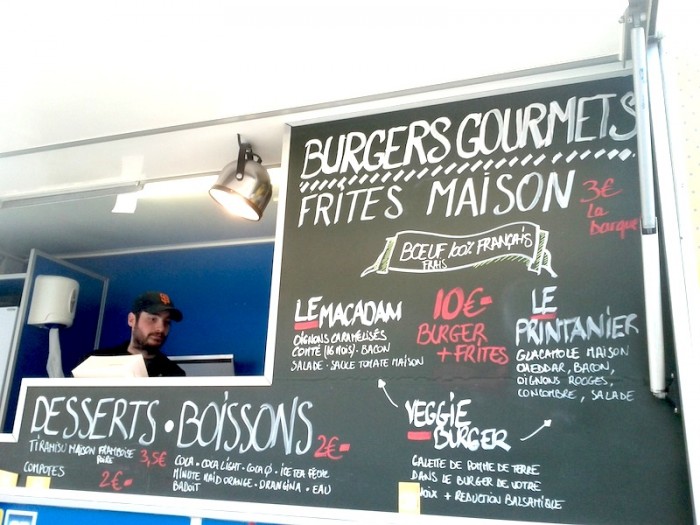 BURGERS GOURMETS
FRITES MAISON
3€
La
barque
BŒUF 100% FRANÇAIS
FRAIS
LE MACADAM
OIGNONS CARAMÉLISÉS
COMTÉ (16 MOIS) - BACON
SALADE - SAUCE TOMATE MAISON
10€-
BURGER
+ FRITES
LE
PRINTANIER
GUACAMOLE MAISON
CHEDDAR, BACON,
OIGNONS ROUGES,
CONCOMBRE, SALADE
VEGGIE
BURGER
GALETTE DE POMME DE TERRE
DANS LE BURGER DE VOTRE
CHOIX + REDUCTION BALSAMIQUE
DESSERTS • BOISSONS
TIRAMISU MAISON FRAMBOISE
POIRE
3,5€
COMPOTES
2€-
2€-
COCA • COCA LIGHT • COCA Ø • ICE TEA PÊCHE
MINUTE MAID ORANGE • ORANGINA • EAU
BADOIT